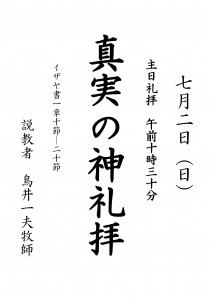 七月二日（日）
主日礼拝　午前十時三十分
真実の神礼拝
イザヤ書一章十節―二十節
説教者　鳥井一夫牧師